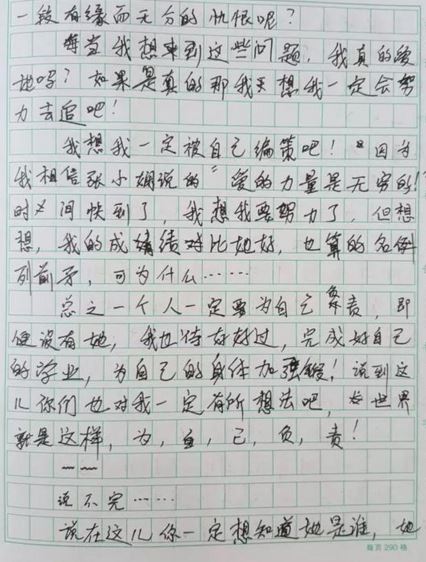 一段有缘而无分的仇恨呢？
每当我想来到这些问题，我真的爱
她吗？如果是真的那我天想我一定会努
力去追吧！
我想我一定被自己编策吧！"因为
我相信张小娴说的"爱的力量是无穷的！
时间快到了，我想我要努力了，但想
想，我的成绩对比她好，也算的名列
列前矛，可为什么……
总之一个人一定要为自己负责，即
便没有她，我也得好好过，完成好自己
的学业，为自己的身体加强锻！说到这
儿你们也对我一定有所想法吧，世界
就是这样，为，自，己，负，责！
说不完……
说在这儿你一定想知道她是谁，她
每页 290 格